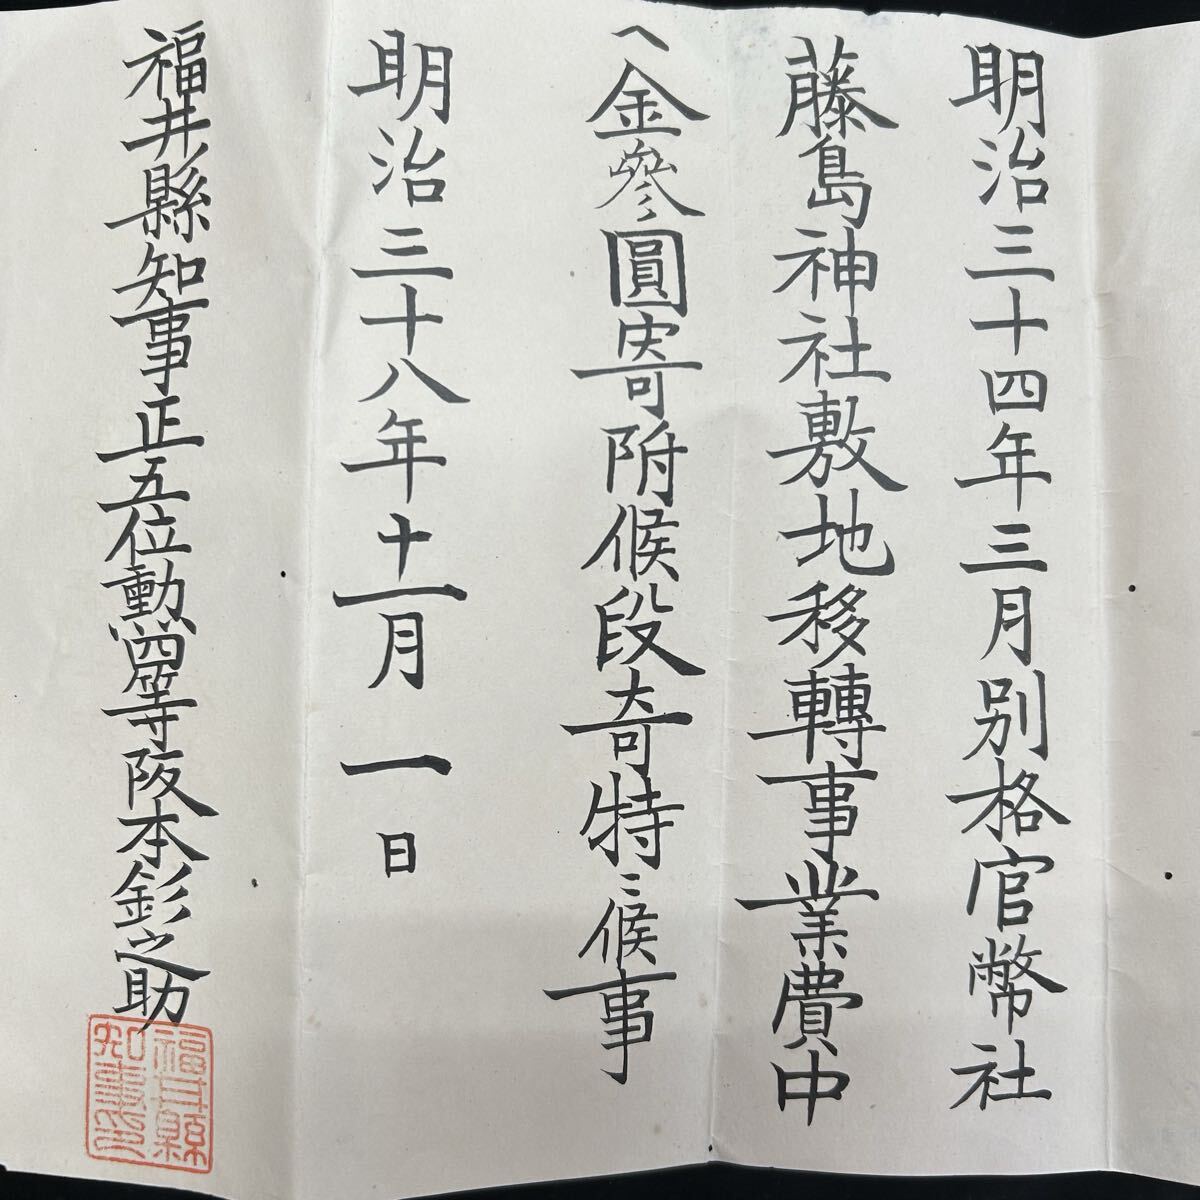 明治三十四年三月別格官幣社
藤島神社敷地移轉事業費中
へ金參圓寄附候段奇特ニ候事
明治三十八年十一月一日
福井縣知事正五位勳四等阪本釤之助
福井縣知事印